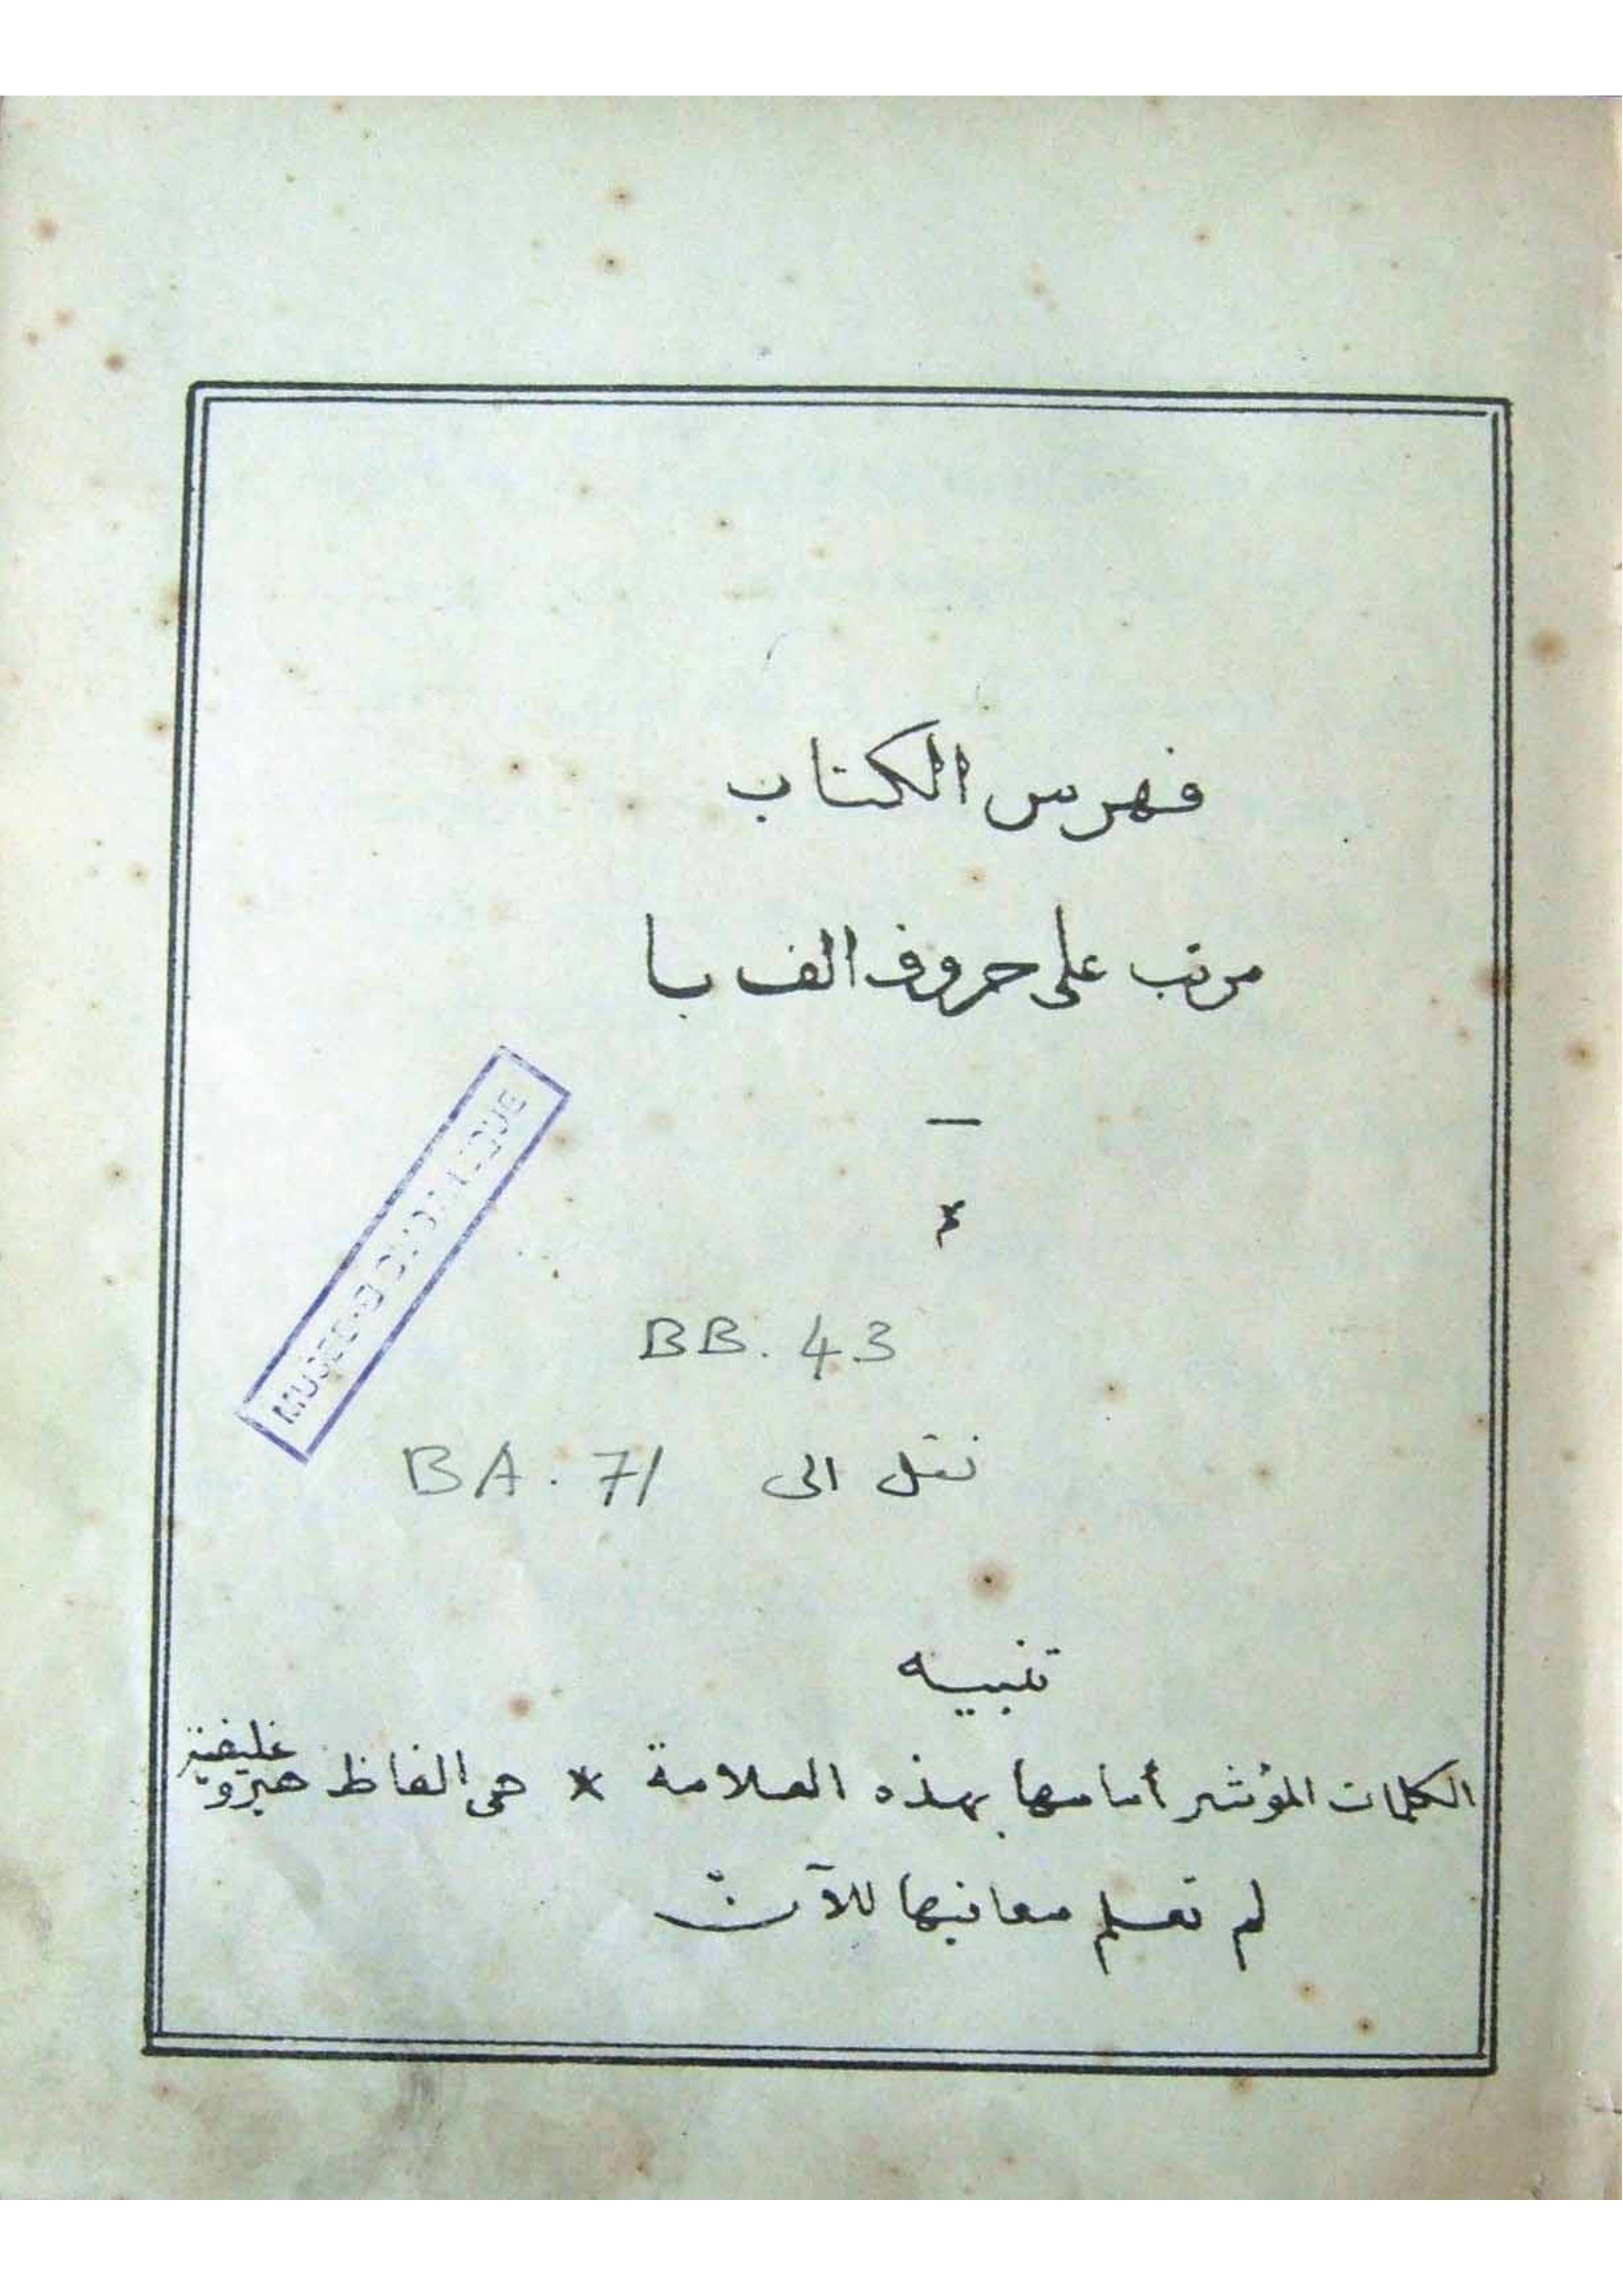 فهرس الكتاب
مرتب على حروف الف با
BB. 43
نقل الى BA. 71
تنبيه
الكلمات المؤشر أمامها بهذه العلامة * هى الفاظ هيروغليفية
لم تعلم معانيها للآن